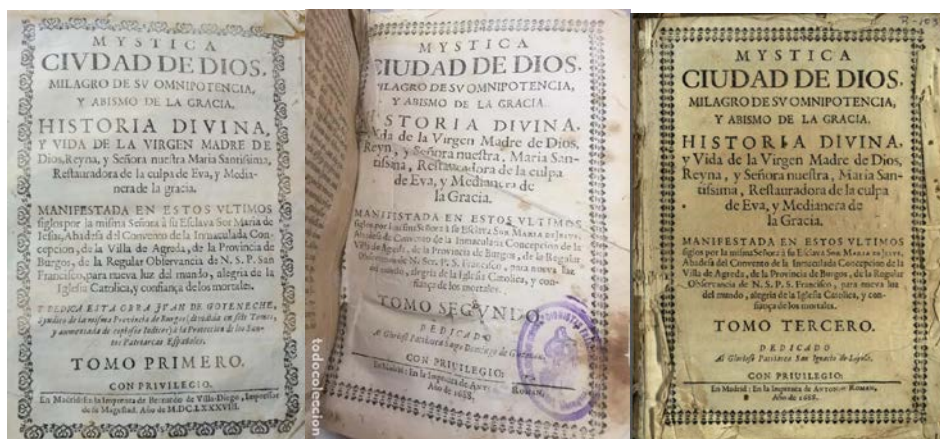 MYSTICA
CIVDAD DE DIOS,
MILAGRO DE SV OMNIPOTENCIA,
Y ABISMO DE LA GRACIA.
HISTORIA DIVINA,
Y VIDA DE LA VIRGEN MADRE DE
Dios, Reyna, y Señora nuestra Maria Santissima,
Restauradora de la culpa de Eva, y Media-
nera de la gracia.
MANIFESTADA EN ESTOS VLTIMOS
siglos por la misma Señora à su Esclava Sor Maria de
Iesus, Abadesa del Convento de la Inmaculada Con-
cepcion, de la Villa de Agreda, de la Provincia de
Burgos, de la Regular Observancia de N. S. P. San
Francisco, para nueva luz del mundo, alegria de la
Iglesia Catolica, y confiança de los mortales.
Y DEDICA ESTA OBRA JVAN DE GOYENECHE,
Syndico de la misma Provincia de Burgos (dividida en siete Tomos,
y aumentada de copiosos Indices) à la Proteccion de los San-
tos Patriarcas Españoles.
TOMO PRIMERO.
CON PRIVILEGIO.
En Madrid: En la Imprenta de Bernardo de Villa-Diego, Impressor
de su Magestad. Año de M.DC.LXXXVIII.
MYSTICA
CIUDAD DE DIOS,
MILAGRO DE SV OMNIPOTENCIA,
Y ABISMO DE LA GRACIA.
HISTORIA DIVINA,
Vida de la Virgen Madre de Dios,
Reyn , y Señora nuestra, Maria San-
tissima, Restauradora de la culpa
de Eva, y Medianera de
la Gracia.
MANIFISTADA EN ESTOS VLTIMOS
siglos por la misma Señora à su Esclava SOR MARIA DE JESVS,
Abadesa de Convento de la Inmaculada Concepcion de la
Villa de Agreda, de la Provincia de Burgos, de la Regular
Observancia de N. Ser. P. S. Francisco, para nueva luz
del mundo, alegria de la Iglesia Catolica, y con-
fiança de los mortales.
TOMO SEGVNDO.
DEDICADO
Al Glorioso Patriarca Santo Domingo de Guzman.
CON PRIVILEGIO:
En Madrid: En la Imprenta de ANT ROMAN,
Año de 1688.
todocoleccion
R-103
MYSTICA
CIUDAD DE DIOS,
MILAGRO DE SV OMNIPOTENCIA,
Y ABISMO DE LA GRACIA.
HISTORIA DIVINA,
y Vida de la Virgen Madre de Dios,
Reyna, y Señora nuestra, Maria San-
tissima, Restauradora de la culpa
de Eva, y Medianera de
la Gracia.
MANIFESTADA EN ESTOS VLTIMOS
siglos por la misma Señora à su Esclava SOR MARIA DE JESVS,
Abadesa del Convento de la Inmaculada Concepcion de la
Villa de Agreda, de la Provincia de Burgos, de la Regular
Observancia de N. S. P. S. Francisco, para nueva luz
del mundo, alegria de la Iglesia Catolica, y con-
fiança de los mortales.
TOMO TERCERO.
DEDICADO
Al Glorioso Patriarca San Ignacio de Loyola.
CON PRIVILEGIO:
En Madrid: En la Imprenta de ANTONIO ROMAN,
Año de 1688.